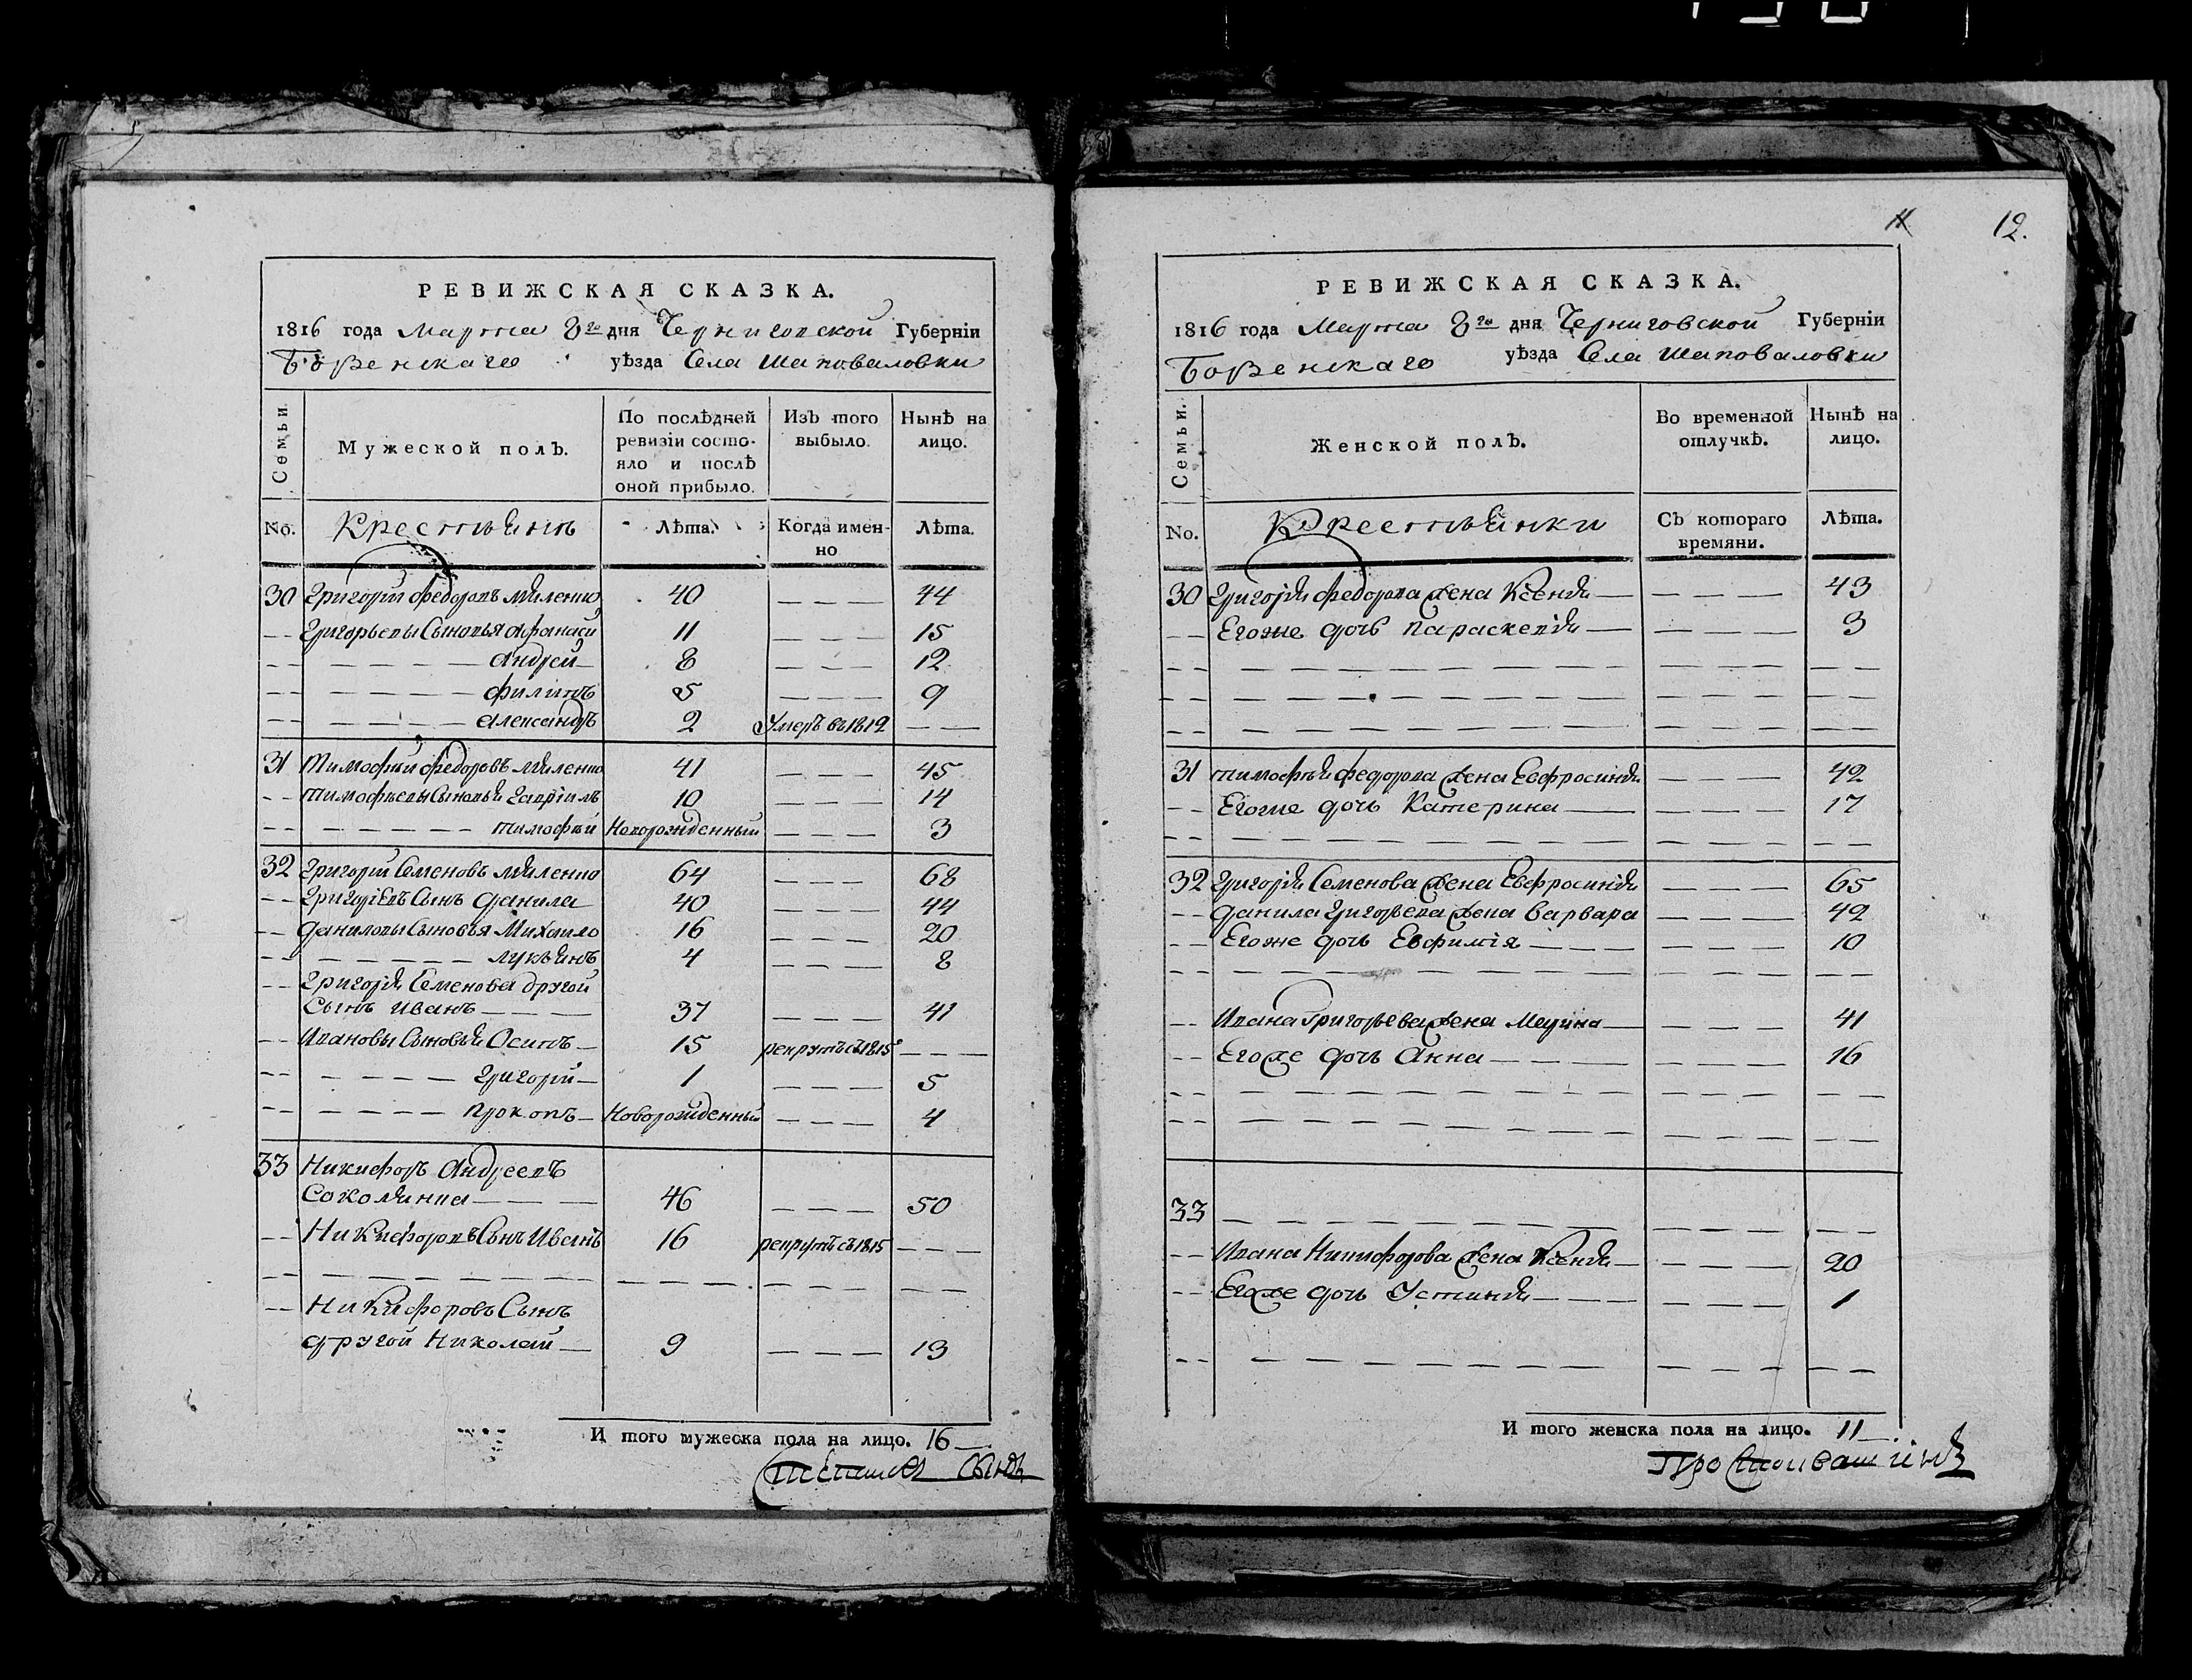 РЕВИЖСКАЯ СКАЗКА.
1816 года Марта 8го дня Черниговской Губерніи
Борзенскаго уѣзда Села Шаповаловки
Семьи. Мужеской полъ. По послѣдней ревизіи состояло и послѣ оной прибыло. Изъ того выбыло. Нынѣ на лицо.
No. Крестьянъ Лѣта. Когда именно Лѣта.
30 Григорій Федоровъ 40 — — — 44
— — Григорьевы Сыновья Афанасій 11 — — — 15
— — — — — — — Андрей — 8 — — — 12
— — — — — — — Филипъ 5 — — — 9
— — — — — — — Александръ 2 Умеръ въ 1812 — —
31 Тимофѣй Федоровъ 41 — — — 45
— — Тимофѣевы Сыновья Гавріилъ 10 — — — 14
— — — — — — — — Тимофѣй Новорожденный — — — 3
32 Григорій Семеновъ 64 — — — 68
— — Григоріевъ Сынъ Данила 40 — — — 44
— — Даниловы Сыновья Михаило 16 — — — 20
— — — — — — — Лукьянъ 4 — — — 8
— — Григорія Семенова другой
Сынъ Иванъ — — — 37 — — — 41
— — Ивановы Сыновья Осипъ — 15 рекрутъ съ 1815 — — —
— — — — — — Григорій — 1 — — — 5
— — — — — — Прокопъ — Новорожденный — — — 4
33 Никифоръ Андреевъ
— — — 46 — — — 50
— — Никифоровъ Сынъ Иванъ 16 рекрутъ съ 1815 — — —
— — Никифоровъ Сынъ
другой Николай — 9 — — — 13
И того мужеска пола на лицо. 16 —
11 12.
РЕВИЖСКАЯ СКАЗКА.
1816 года Марта 8го дня Черниговской Губерніи
Борзенскаго уѣзда Села Шаповаловки
Семьи. Женской полъ. Во временной отлучкѣ. Нынѣ на лицо.
No. Крестьянки Съ котораго времяни. Лѣта.
30 Григорія Федорова жена Ксенія — — — — 43
— — Егоже дочь Параскевія — — — — 3
31 Тимофѣя Федорова жена Евфросинія — — — 42
— — Егоже дочь Катерина — — — — 17
32 Григорія Семенова жена Евфросинія — — — 65
— — Данила Григорьева жена Варвара — — — 42
— — Егоже дочь Евфимія — — — — — — 10
— — Ивана Григорьева жена Марина — — — — 41
— — Егоже дочь Анна — — — — — — — 16
33 — — — — — — — — — — — — —
— — Ивана Никифорова жена Ксенія — — — — 20
— — Егоже дочь Устинія — — — — — — 1
И того женска пола на лицо. 11 —